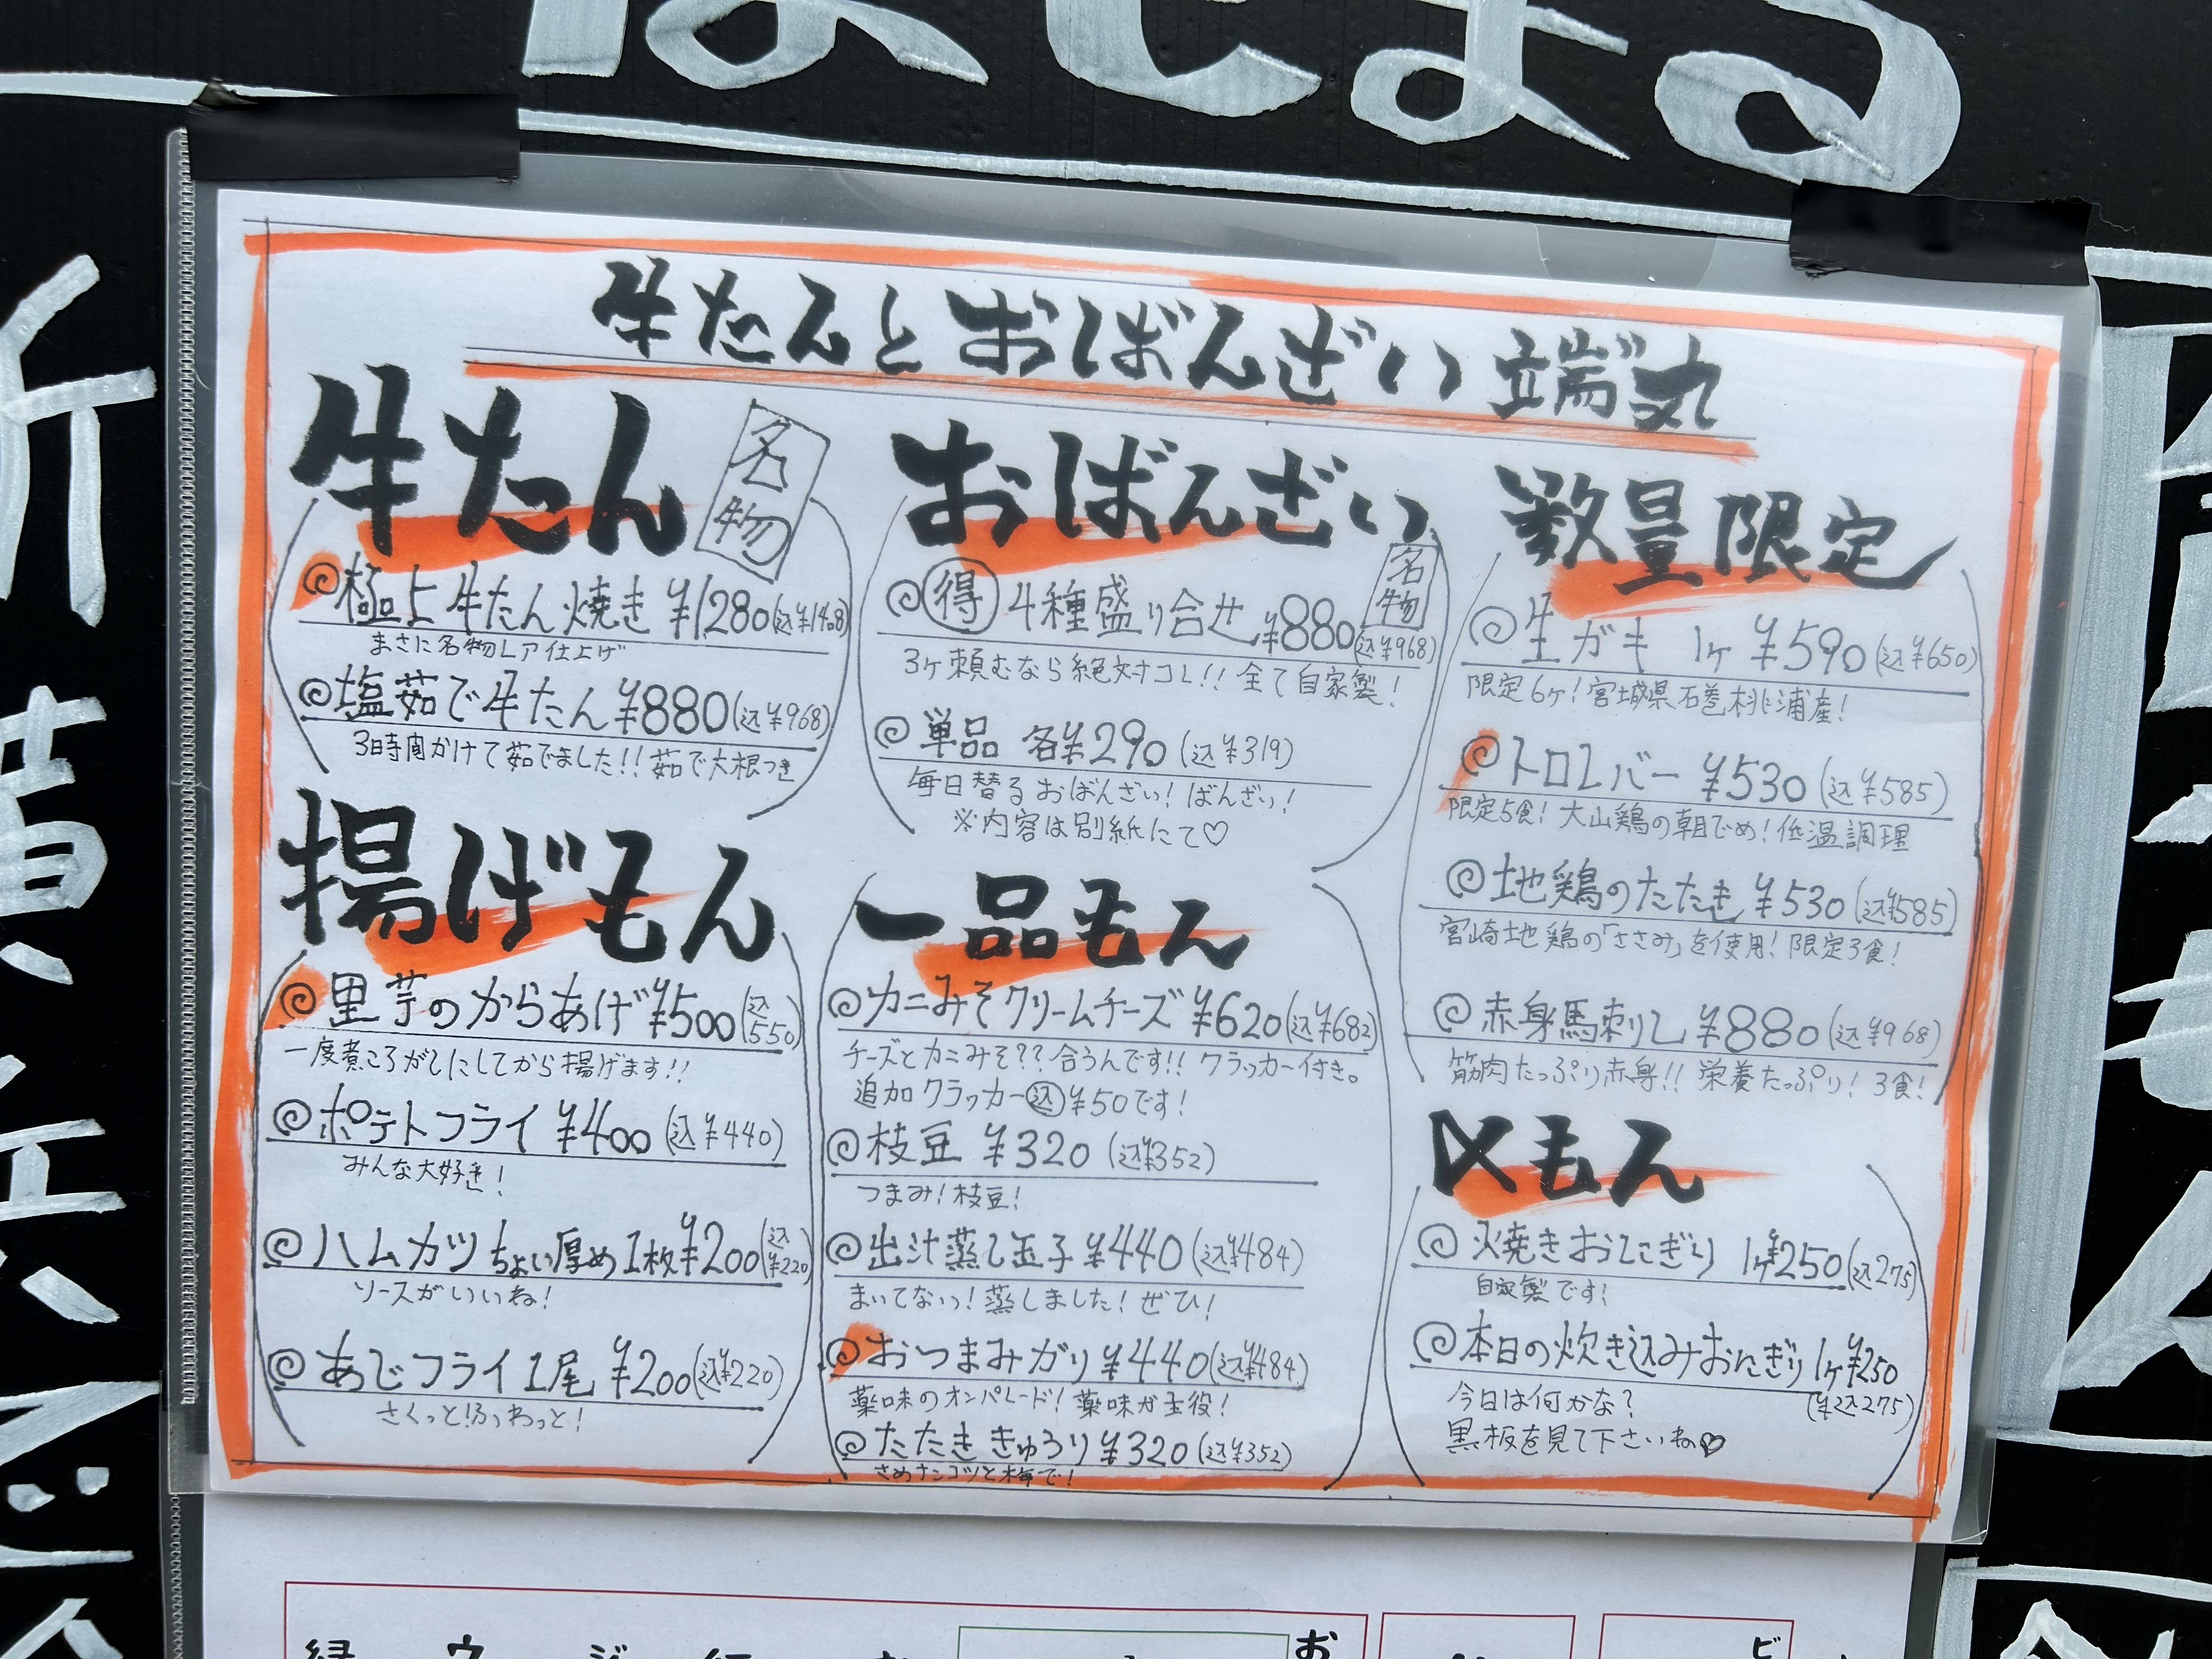 はしまる
牛たんとおばんざい 端丸
牛たん 名物
極上牛たん焼き ¥1280(込¥1408)
まさに名物レア仕上げ
塩茹で牛たん ¥880(込¥968)
3時間かけて茹でました!! 茹で大根つき
揚げもん
里芋のからあげ ¥500(込550)
一度煮ころがしにしてから揚げます!!
ポテトフライ ¥400(込¥440)
みんな大好き!
ハムカツ ちょい厚め 1枚 ¥200(込¥220)
ソースがいいね!
あじフライ 1尾 ¥200(込¥220)
さくっと!ふわっと!
おばんざい 名物
得 4種盛り合せ ¥880(込¥968)
3ヶ頼むなら絶対コレ!! 全て自家製!
単品 各¥290(込¥319)
毎日替るおばんざい! ばんざい!
※内容は別紙にて♡
一品もん
カニみそクリームチーズ ¥620(込¥682)
チーズとカニみそ??合うんです!! クラッカー付き。
追加クラッカー込¥50です!
枝豆 ¥320(込¥352)
つまみ!枝豆!
出汁蒸し玉子 ¥440(込¥484)
まいてないっ!蒸しました! ぜひ!
おつまみガリ ¥440(込¥484)
薬味のオンパレード! 薬味が主役!
たたききゅうり ¥320(込¥352)
さめナンコツと梅で!
数量限定
生ガキ 1ヶ ¥590(込¥650)
限定6ヶ!宮城県石巻桃浦産!
トロレバー ¥530(込¥585)
限定5食! 大山鶏の朝〆!低温調理
地鶏のたたき ¥530(込¥585)
宮崎地鶏の「ささみ」を使用! 限定3食!
赤身馬刺し ¥880(込¥968)
筋肉たっぷり赤身!! 栄養たっぷり! 3食!
〆もん
焼きおにぎり 1ヶ¥250(込275)
自家製です!
本日の炊き込みおにぎり 1ヶ¥250
(¥込275)
今日は何かな?
黒板を見て下さいね♡